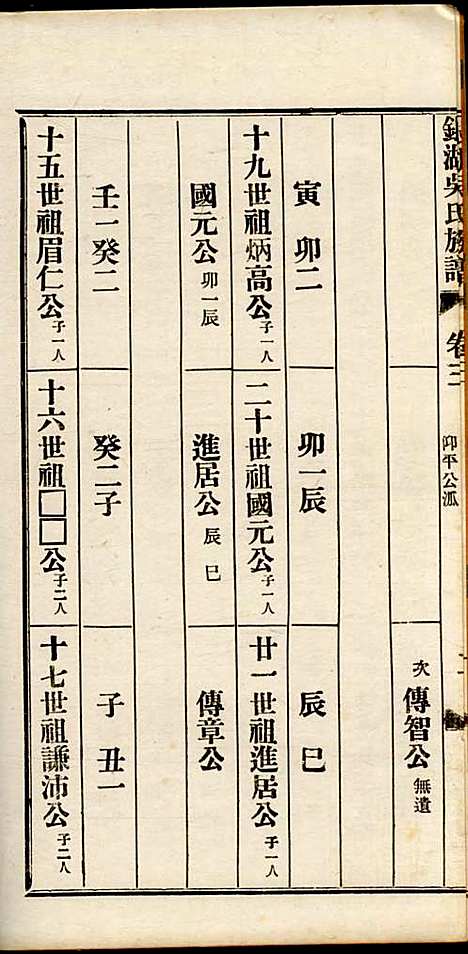 湖吳氏族譜
卷三
仰平公派
次傳智公無遺
寅卯二
卯一辰
辰巳
十九世祖炳高公子一人
二十世祖國元公子一人
廿一世祖進居公子一人
國元公卯一辰
進居公辰巳
傳章公
壬一癸二
癸二子
子丑一
十五世祖眉仁公子一人
十六世祖□□公子二人
十七世祖謙沛公子二人